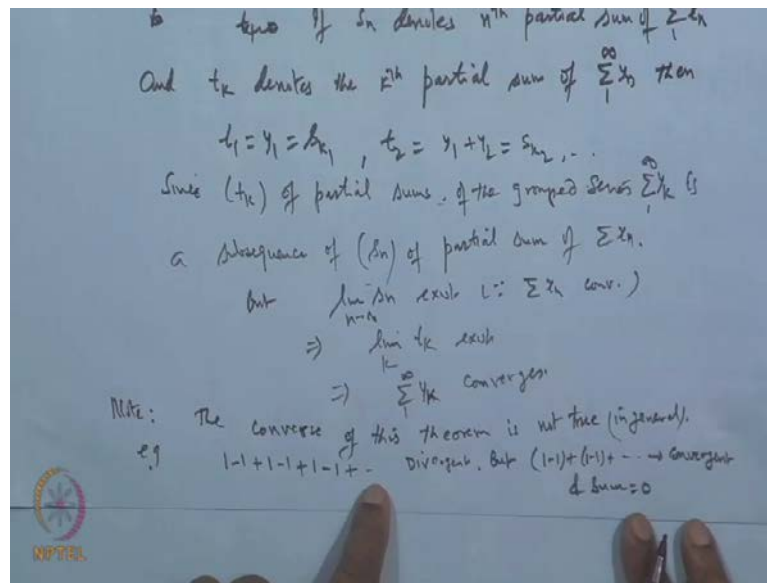 If Sn denotes nth partial sum of ∑ xn
And tk denotes the kth partial sum of ∞ ∑ 1 yn then
t1 = y1 = Sk1 , t2 = y1 + y2 = Sk2 , ..
Since (tk) of partial sums of the grouped series ∞ ∑ 1 yk is
a subsequence of (Sn) of partial sum of ∑ xn.
but lim n→∞ Sn exist (∵ ∑ xn conv.)
⇒ lim k tk exist
⇒ ∞ ∑ 1 yk converges.
Note: The converse of this theorem is not true (in general).
e.g 1-1+1-1+1-1+ -- Divergent. But (1-1)+(1-1)+ - - - → Convergent
& Sum=0
NPTEL